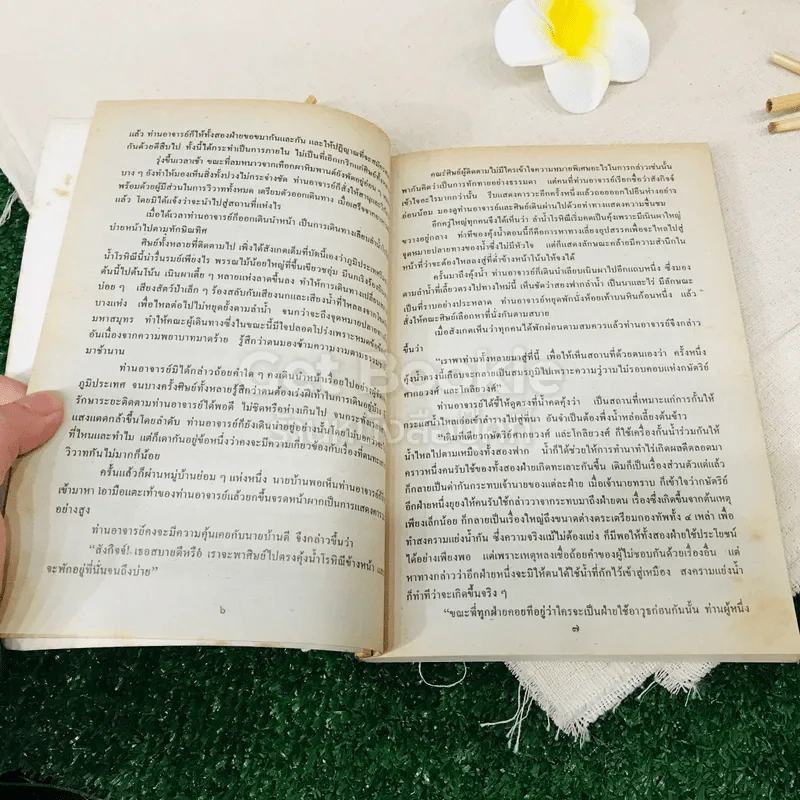 แล้ว ท่านอาจารย์ก็ให้ทั้งสองฝ่ายขอขมากันและกัน และให้ปฏิญาณที่จะ
กันด้วยดีสืบไป ทั้งนี้ได้กระทำเป็นการภายใน ไม่เป็นที่เอิกเกริกแก่ศิษย์อื่น
รุ่งขึ้นเวลาเช้า ขณะที่ลมหนาวจากเทือกผาหิมพานต์ยังพัดอยู่อ่อน
บาง ๆ ยังทำให้มองเห็นสิ่งทั้งปวงไม่กระจ่างชัด ท่านอาจารย์ก็สั่งให้
พร้อมด้วยผู้มีส่วนในการวิวาททั้งหมด เตรียมตัวออกเดินทาง เมื่อเสร็จ
แล้ว โดยมิได้แจ้งว่าจะนำไปสู่สถานที่แห่งไร
เมื่อได้เวลาท่านอาจารย์ก็ออกเดินนำหน้า เป็นการเดินทางเลียบลำน้ำ
บ่ายหน้าไปตามทักษิณทิศ
ศิษย์ทั้งหลายที่ติดตามไป เพิ่งได้สังเกตเต็มที่บัดนี้เองว่าภูมิประเทศ
น้ำโรหิณีนี้น่ารื่นรมย์เพียงไร พรรณไม้น้อยใหญ่ที่ขึ้นเขียวชอุ่ม มีนกเริงร้อง
ต้นนี้ไปต้นโน้น เนินผาเตี้ย ๆ หลายแห่งลาดขึ้นลง ทำให้การเดินทางเปลี่ยน
บ่อย ๆ เสียงสัตว์ป่าเล็ก ๆ ร้องสลับกับเสียงนกและเสียงน้ำที่ไหลลงจาก
บางแห่ง เพื่อไหลต่อไปไม่หยุดยั้งตามลำน้ำ จนกว่าจะถึงจุดหมายปลายทาง
มหาสมุทร ทำให้คณะผู้เดินทางซึ่งในขณะนี้มีใจปลอดโปร่งเพราะหมดข้อ
อันเนื่องจากความพยาบาทมาดร้าย รู้สึกว่าตนมองข้ามความงามตามธรรมชาติ
มาช้านาน
ท่านอาจารย์มิได้กล่าวถ้อยคำใด ๆ คงเดินนำหน้าเรื่อยไปอย่างผู้
ภูมิประเทศ จนบางครั้งศิษย์ทั้งหลายรู้สึกว่าตนต้องเร่งฝีเท้าในการเดินอยู่
รักษาระยะติดตามท่านอาจารย์ได้พอดี ไม่ชิดหรือห่างเกินไป จนกระทั่ง
แสงแดดกล้าขึ้นโดยลำดับ ท่านอาจารย์ก็ยังเดินนำอยู่อย่างนั้นโดยไม่บอกว่า
ที่ไหนและทำไม แต่ก็เดากันอยู่ข้อหนึ่งว่าคงจะมีความเกี่ยวข้องกับเรื่องที่ตนทะเลาะ
วิวาทกันไม่มากก็น้อย
ครั้นแล้วก็ผ่านหมู่บ้านย่อม ๆ แห่งหนึ่ง นายบ้านพอเห็นท่านอาจารย์ก็
เข้ามาหา เอามือแตะเท้าของท่านอาจารย์แล้วยกขึ้นจรดหน้าผากเป็นการแสดงคารวะ
อย่างสูง
ท่านอาจารย์คงจะมีความคุ้นเคยกับนายบ้านดี จึงกล่าวขึ้นว่า
“สังกิจจ์! เธอสบายดีหรือ เราจะพาศิษย์ไปตรงคุ้งน้ำโรหิณีข้างหน้า
จะพักอยู่ที่นั่นจนถึงบ่าย”
๖
คณะศิษย์ผู้ติดตามไม่มีใครเข้าใจความหมายพิเศษอะไรในการกล่าวเช่นนั้น
พากันคิดว่าเป็นการทักทายอย่างธรรมดา แต่คนที่ท่านอาจารย์เรียกชื่อว่าสังกิจจ์
เข้าใจอะไรมากกว่านั้น รีบแสดงคารวะอีกครั้งหนึ่งแล้วถอยออกไปยืนห่างอย่าง
อ่อนน้อม มองดูท่านอาจารย์และศิษย์เดินผ่านไปด้วยท่าทางแสดงความชื่นชม
อีกครู่ใหญ่ทุกคนจึงได้เห็นว่า ลำน้ำโรหิณีเริ่มคดเป็นคุ้งเพราะมีเนินผาใหญ่
ขวางอยู่กลาง ท่าทีของคุ้งน้ำตอนนี้ก็คือการหาทางเลี่ยงอุปสรรคเพื่อจะไหลไปสู่
จุดหมายปลายทางของน้ำซึ่งไม่มีหัวใจ แต่ก็แสดงลักษณะคล้ายมีความสำนึกใน
หน้าที่ว่าจะต้องไหลลงสู่ที่ต่ำข้างหน้าโน้นให้จงได้
ครั้นมาถึงคุ้งน้ำ ท่านอาจารย์ก็เดินนำเลียบเนินผาไปอีกแถบหนึ่ง ซึ่งมอง
ตามลำน้ำที่เลี้ยวตรงไปทางใหม่นี้ เห็นชัดว่าสองฟากลำน้ำ เป็นนาและไร่ มีลักษณะ
เป็นที่ราบอย่างประหลาด ท่านอาจารย์หยุดพักนั่งห้อยเท้าบนหินก้อนหนึ่ง แล้ว
สั่งให้คณะศิษย์เลือกหาที่นั่งกันตามสบาย
เมื่อสังเกตเห็นว่าทุกคนได้พักผ่อนตามสมควรแล้วท่านอาจารย์จึงกล่าว
ขึ้นว่า
“เราพาท่านทั้งหลายมาสู่ที่นี้ เพื่อให้เห็นสถานที่ด้วยตนเองว่า ครั้งหนึ่ง
คุ้งน้ำตรงนี้เกือบจะกลายเป็นสมรภูมิไปเพราะความวู่วามไม่รอบคอบแห่งกษัตริย์
ศากยวงศ์ และโกลิยวงศ์”
ท่านอาจารย์ได้ชี้ให้ดูตรงที่น้ำคดคุ้งว่า เป็นสถานที่เหมาะแก่การกั้นให้
กระแสน้ำไหลเข้าสู่เหมืองทางไปสู่ที่นา อันจำเป็นต้องพึ่งน้ำหล่อเลี้ยงต้นข้าว
“เดิมทีเดียวกษัตริย์ศากยวงศ์ และโกลิยวงศ์ ก็ใช้เครื่องกั้นน้ำร่วมกันให้
น้ำไหลไปตามเหมืองทั้งสองฟาก น้ำก็ได้ช่วยให้การทำนาทำไร่เกิดผลดีตลอดมา
คราวหนึ่งคนรับใช้ของทั้งสองฝ่ายเกิดทะเลาะกันขึ้น เดิมก็เป็นเรื่องส่วนตัวแต่แล้ว
ก็กลายเป็นด่ากันกระทบเจ้านายของแต่ละฝ่าย เมื่อเจ้านายทราบ ก็เข้าใจว่ากษัตริย์
อีกฝ่ายหนึ่งยุยงให้คนรับใช้กล่าววาจากระทบมาถึงฝ่ายตน เรื่องซึ่งเกิดขึ้นจากต้นเหตุ
เพียงเล็กน้อย ก็กลายเป็นเรื่องใหญ่ถึงขนาดต่างตระเตรียมกองทัพทั้ง ๔ เหล่า เพื่อ
ทำสงครามแย่งน้ำกัน ซึ่งความจริงแม้ไม่ต้องแย่ง ก็มีพอให้ทั้งสองฝ่ายใช้ประโยชน์
ได้อย่างเพียงพอ แต่เพราะเหตุหลงเชื่อถ้อยคำของผู้ไม่ชอบกันด้วยเรื่องอื่น แต่
หาทางกล่าวว่าอีกฝ่ายหนึ่งจะมิให้ตนได้ใช้น้ำที่กักไว้เข้าสู่เหมือง สงครามแย่งน้ำ
ก็ทำทีว่าจะเกิดขึ้นจริง ๆ
“ขณะที่ทุกฝ่ายคอยทีอยู่ว่าใครจะเป็นฝ่ายใช้อาวุธก่อนกันนั้น ท่านผู้หนึ่ง
๗
Get Bookie